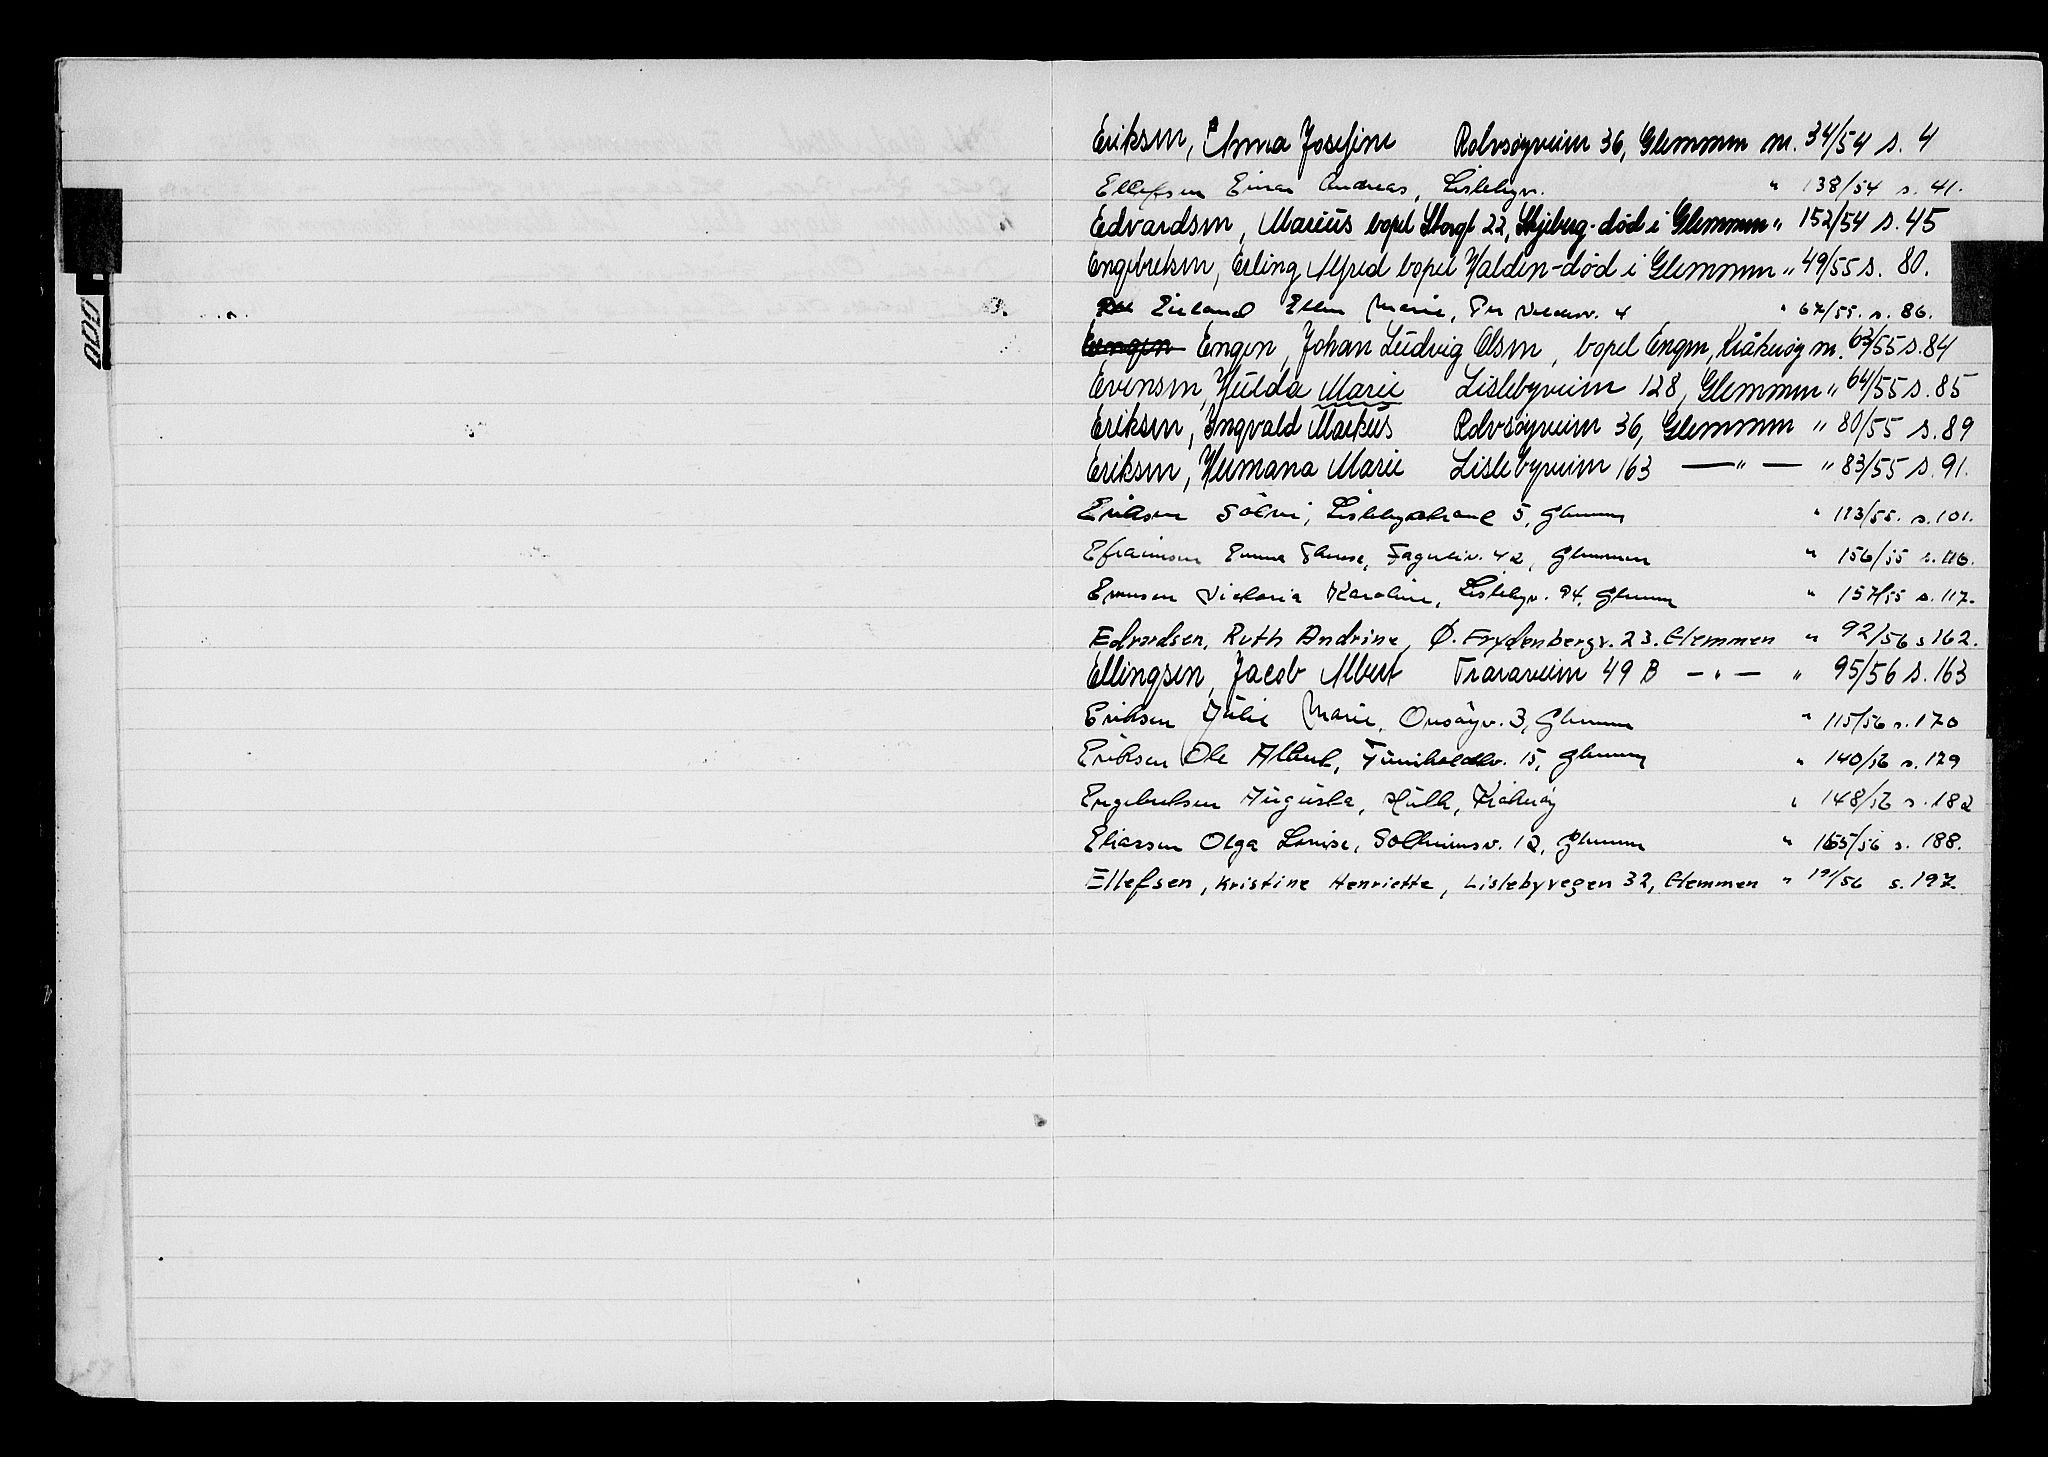 Eriksen, Anna Josefine Rolvsøyveien 36, Glemmen nr. 34/54 s. 4
Ellefsen Einar Andreas, Lislebyv. " 138/54 s. 41.
Edvardsen, Marius bopel Storgt 22, Skjeberg - død i Glemmen " 152/54 s. 45
Engebretsen, Erling Alfred bopel Halden - død i Glemmen " 49/55 s. 80.
Eieland Ellen Marie, Per 4 " 67/55. s. 86.
Engen, Johan Ludvig Olsen, bopel Engen, Kråkerøy nr. 63/55 s. 84
Evensen, Hulda Marie Lislebyveien 128, Glemmen " 64/55 s. 85
Eriksen, Ingvald Markus Rolvsøyveien 36, Glemmen " 80/55 s. 89
Eriksen, Hermana Marie Lislebyveien 163 — " — " 83/55 s. 91.
Eriksen Sölvi, Lislebystrand 5, Glemmen " 113/55. s. 101.
Efraimsen Emma Therese, Fagerliv. 42, Glemmen " 156/55 s. 116.
Evensen Victoria Karoline, Lislebyv. 94, Glemmen " 157/55 s. 117.
Edvardsen, Ruth Andrine, Ø. Frydenbergv. 23. Glemmen " 92/56 s 162.
Ellingsen, Jacob Albert Traraveien 49 B — " — " 95/56 s. 163
Eriksen Julie Marie, Onsøyv. 3, Glemmen " 115/56 s. 170
Eriksen Ole Albert, 15, Glemmen " 140/56 s. 179
Engebretsen Augusta, Kråkerøy " 148/56 s. 182
Eliassen Olga Lovise, Solheimsv. 12, Glemmen " 165/56 s. 188.
Ellefsen, Kristine Henriette, Lislebyvegen 32, Glemmen " 191/56 s. 197.